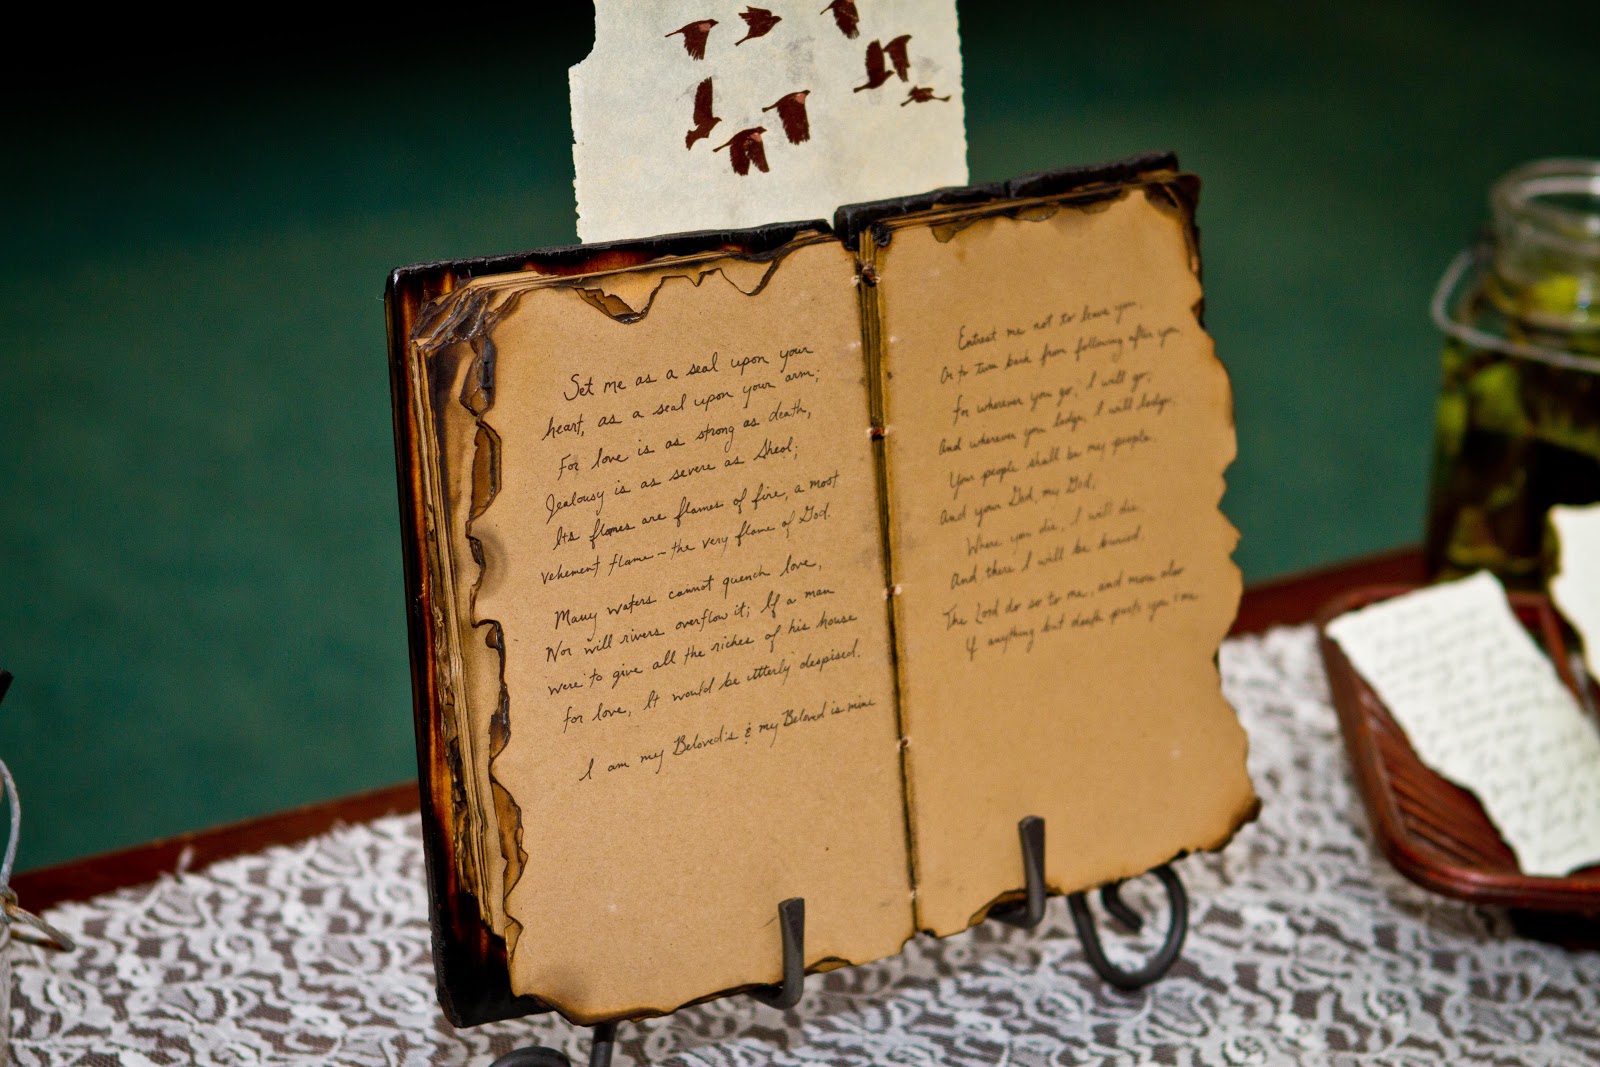 Set me as a seal upon your
heart, as a seal upon your arm;
For love is as strong as death,
Jealousy is as severe as Sheol;
Its flames are flames of fire, a most
vehement flame - the very flame of God.
Many waters cannot quench love,
Nor will rivers overflow it; If a man
were to give all the riches of his house
for love, It would be utterly despised.
I am my Beloved's & my Beloved is mine
Entreat me not to leave you,
Or to turn back from following after you,
for wherever you go, I will go,
And wherever you lodge, I will lodge,
Your people shall be my people,
And your God, my God,
Where you die, I will die
And there I will be buried.
The Lord do so to me, and more also
If anything but death parts you & me